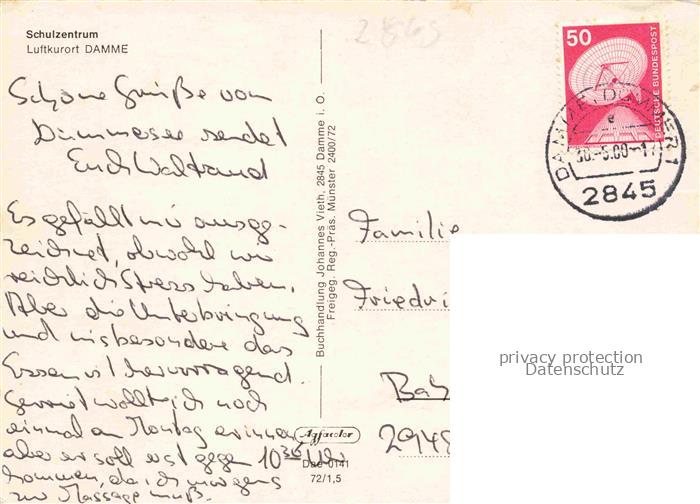 Schulzentrum
Luftkurort DAMME
Schöne Grüße vom
Dümmersee sendet
Euch Waltraud
Es gefällt mir ausge-
zeichnet, obwohl wir
reichlich Stress haben.
Aber die Unterbringung
und insbesondere das
Essen ist hervorragend.
Gerrit wollte ich noch
einmal an Montag erinnern
aber er soll erst gegen 10 30 Uhr
kommen, da ich morgens
zur Massage muß.
Buchhandlung Johannes Vieth, 2845 Damme i. O.
Freigeg. Reg.-Präs. Münster 2400/72
Agfacolor
Dae 0141
72/1,5
50
DEUTSCHE BUNDESPOST
DAMME, DÜMMER 1
e
30.-5.80-17
2845
Familie
Friedri
294
privacy protection
Datenschutz